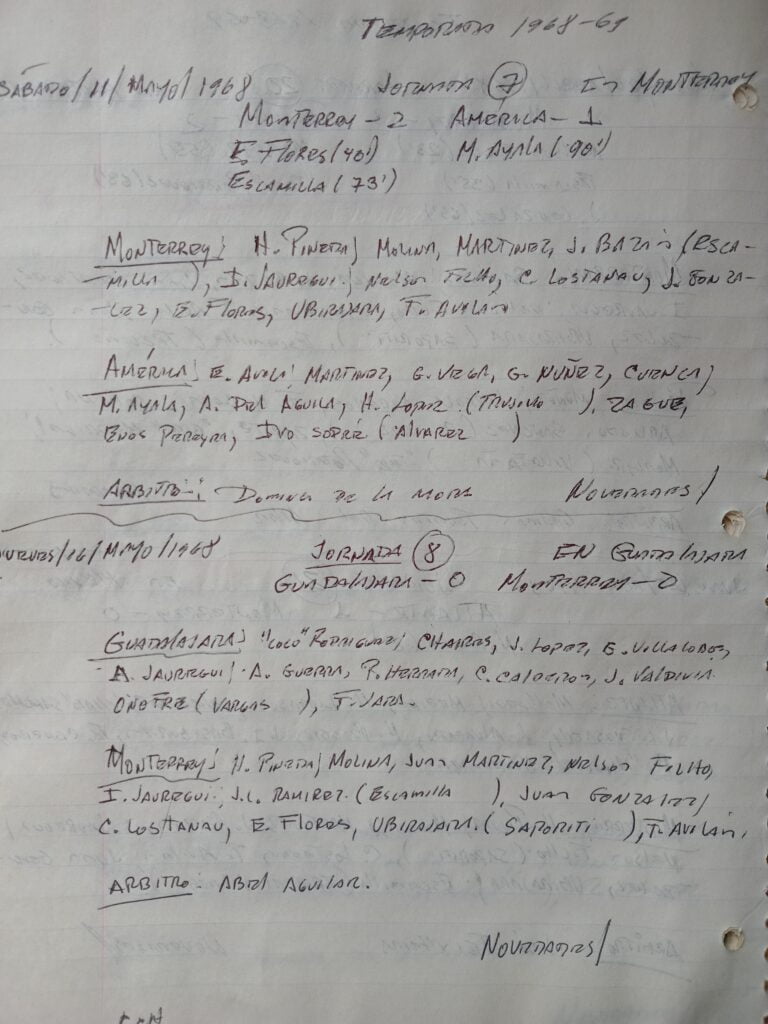 TEMPORADA 1968-69
SÁBADO/11/MAYO/1968 JORNADA 7 EN MONTERREY
MONTERREY-2 AMÉRICA-1
E. FLORES (40') M. AYALA (90')
ESCAMILLA (73')
MONTERREY; H. PINEDA; MOLINA, MARTINEZ, J. BAZÁN (ESCA-
-MILLA ), I. JAUREGUI; NELSON FILHO, C. LOSTANAU, J. GONZA-
-LEZ, E. FLORES, UBIRAJARA, F. AVILÁN
AMÉRICA; E. MARTINEZ, G. VEGA, G. NUÑEZ, CUENCA;
M. AYALA, A. DEL ÁGUILA, H. LOPEZ (TRUJILLO ), ZAGUE,
ENOS PEREYRA, IVO SODRÉ (ALVAREZ )
ARBITRO: DE LA MORA NOVEDADES/
/16/MAYO/1968 JORNADA 8 EN GUADALAJARA
GUADALAJARA-0 MONTERREY-0
GUADALAJARA; "COCO" RODRIGUEZ; CHAIRES, J. LOPEZ, E. VILLALOBOS,
A. JAUREGUI; A. GUERRA, P. HERRADA, C. CALDERON, J. VALDIVIA
ONOFRE (VARGAS ), F. JARA.
MONTERREY; H. PINEDA; MOLINA, JUAN MARTINEZ, NELSON FILHO,
I. JAUREGUI; J.L. RAMIREZ (ESCAMILLA ), JUAN GONZALEZ;
C. LOSTTANAU, E. FLORES, UBIRAJARA (SAPORITI ), F. AVILÁN.
ARBITRO: ABEL AGUILAR.
NOVEDADES/